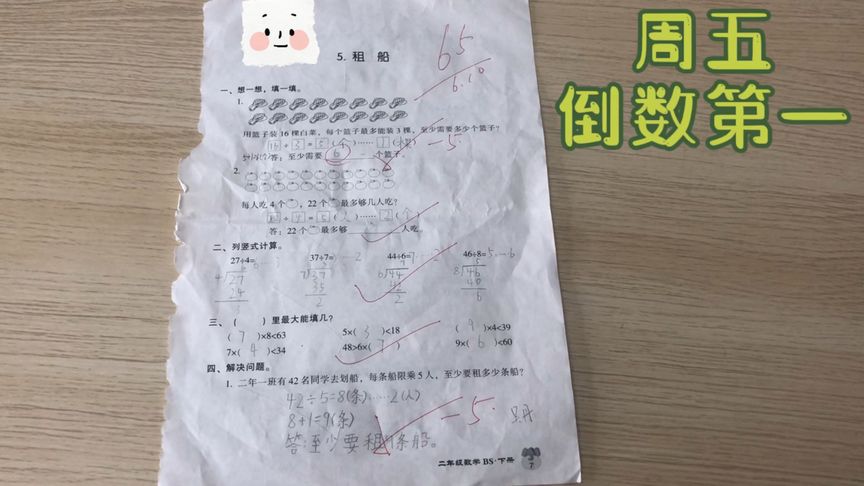 周五
倒数第一
65
6.10
5. 租 船
一、想一想，填一填。
1.
用篮子装 16 棵白菜，每个篮子最多能装 3 棵，至少需要多少个篮子？
16÷3=5(个)……1(棵) -5.
答：至少需要 6 个篮子。
2.
每人吃 4 个，22 个最多够几人吃？
22÷4=5(人)……2(个)
答：22 个最多够 人吃。
二、列竖式计算。
27÷4=6……3 37÷7= ……2 44÷6=7……2 46÷8=5……6
4 27 7 37 6 44 8 46
24 35 42 40
3 2 2 6
三、( )里最大能填几？
( 7 )×8<63 5×( 3 )<18 ( 9 )×4<39
7×( 4 )<34 48>6×( 7 ) 9×( 6 )<60
四、解决问题。
1. 二年一班有 42 名同学去划船，每条船限乘 5 人，至少要租多少条船？
42÷5=8(条)……2(人)
8+1=9(条) -5.
答：至少要租 条船。
二年级数学 BS·下册
7